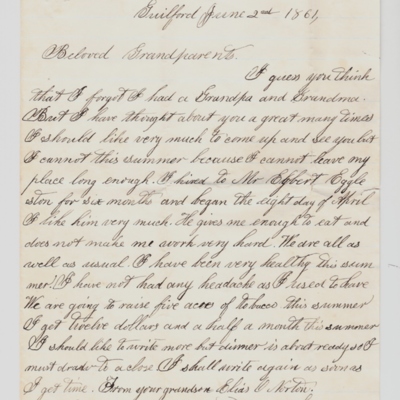 Guilford June 2nd 1861,
Beloved Grandparents.
I guess you think
that I forgot I had a Grandpa and Grandma.
But I have thought about you a great many times
I should like very much to come up and see you but
I cannot this summer because I cannot leave my
place long enough. I hired to Mr Egbert Eggle
ston for six months and began the eight day of April
I like him very much. He gives one enough to eat and
does not make me work very hard. We are all as
well as usual. I have been very healthy this sum
mer. I have not had any headache as I used to have
We are going to raise five acres of tobacco this summer
I got twelve dollars and a half a month this summer
I should like to write more but dinner is about ready so I
must draw to a close I shall write again as soon as
I get time. From your grandson Elias O Norton.